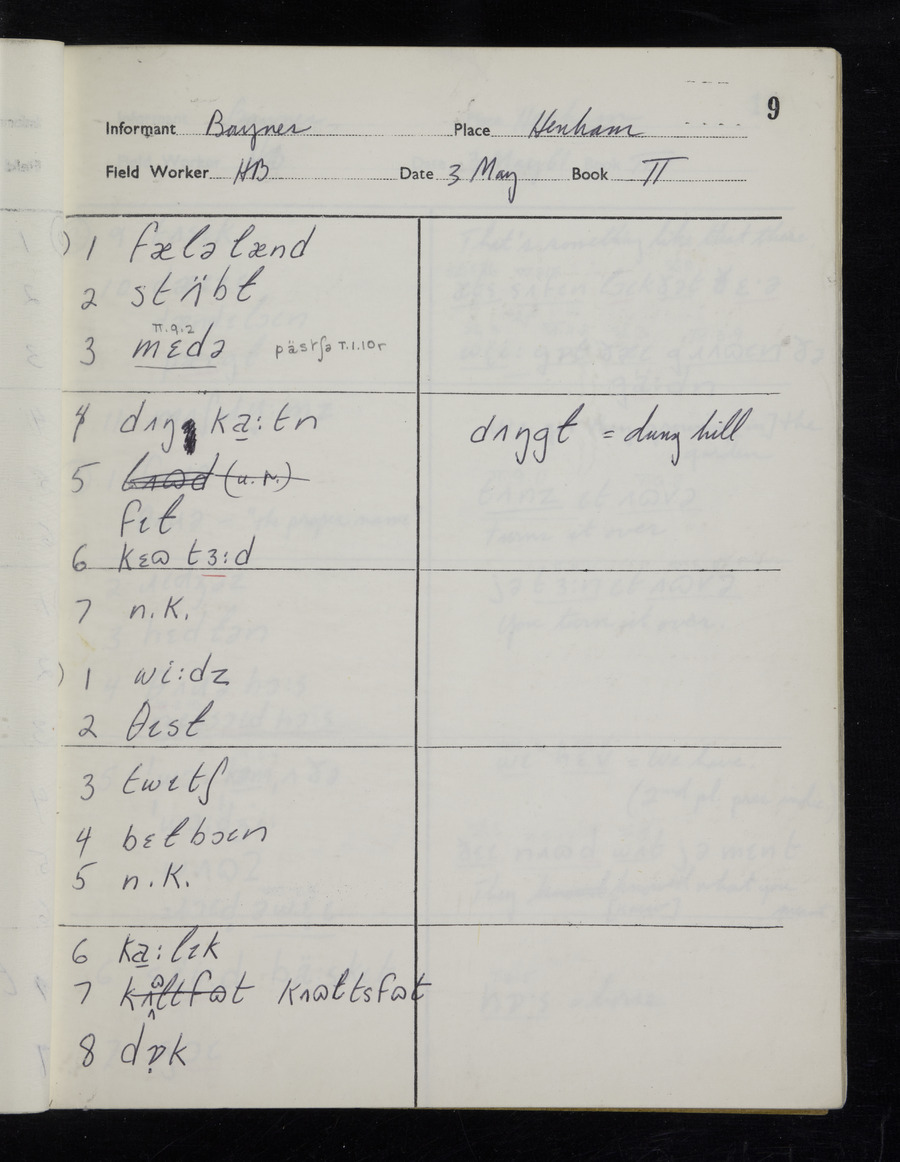 9
Informant Bayner Place Henham
Field Worker HB Date 3 May Book II
) 1 fælə lænd
2 stʌ̈bt
II.9.2
3 mɛdə pästʃə T.1.10r
4 dʌŋ ka̱:tn dʌŋgt = dung hill
5 (u.r.)
fɪt
6 kɛɷ tɜ:d
7 n.k.
) 1 wi:dz
2 θɪst
3 twɪtʃ
4 bɛtbɔɪn
5 n.k.
6 ka̱:lɪk
7 kʌltfɷt kʌɷttsfɷt
8 dɒ̣k